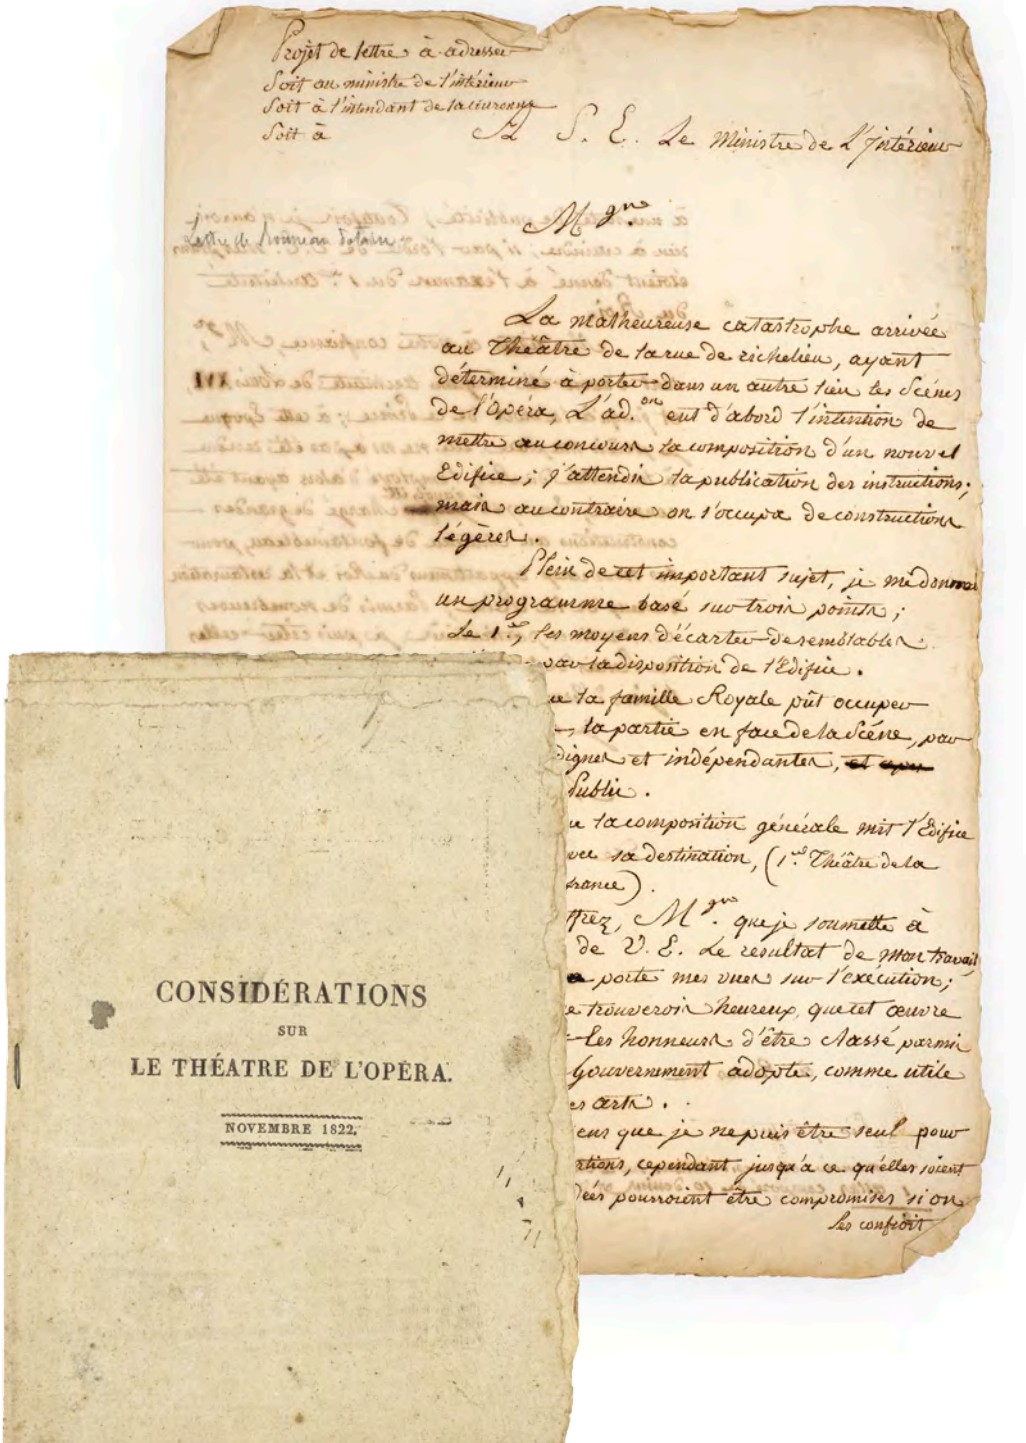 Projet de lettre à adresser
Soit au ministre de l'intérieur
Soit à l'intendant de la couronne
Soit à
A S. E. Le Ministre de L'Intérieur
Mgr.
Lettre de
La malheureuse catastrophe arrivée
au Théâtre de la rue de richelieu, ayant
déterminé à porter dans un autre lieu les Scénes
de l'Opéra, L'ad.on eut d'abord l'intention de
mettre au concours la composition d'un nouvel
Edifice; j'attendis la publication des instructions;
mais au contraire on s'occupa de constructions
légères.
Plein de cet important sujet, je me donnai
un programme basé sur trois points;
Le 1.er, les moyens d'écarter de semblables
par la disposition de l'Edifice.
la famille Royale pût occuper
la partie en face de la Scéne, par
dignes et indépendantes,
Public.
la composition générale mit l'Edifice
sa destination, (1.er Théâtre de la
france).
Mgr. que je soumette à
de V. E. Le résultat de mon travail
porte mes vues sur l'exécution;
trouverois heureux, que cet œuvre
les honneurs d'être classé parmi
Gouvernement adopte, comme utile
arts.
que je ne puis être seul pour
cependant jusqu'à ce qu'elles soient
pourroient être compromises si on
les confioit
CONSIDÉRATIONS
SUR
LE THÉATRE DE L'OPÉRA.
NOVEMBRE 1822.